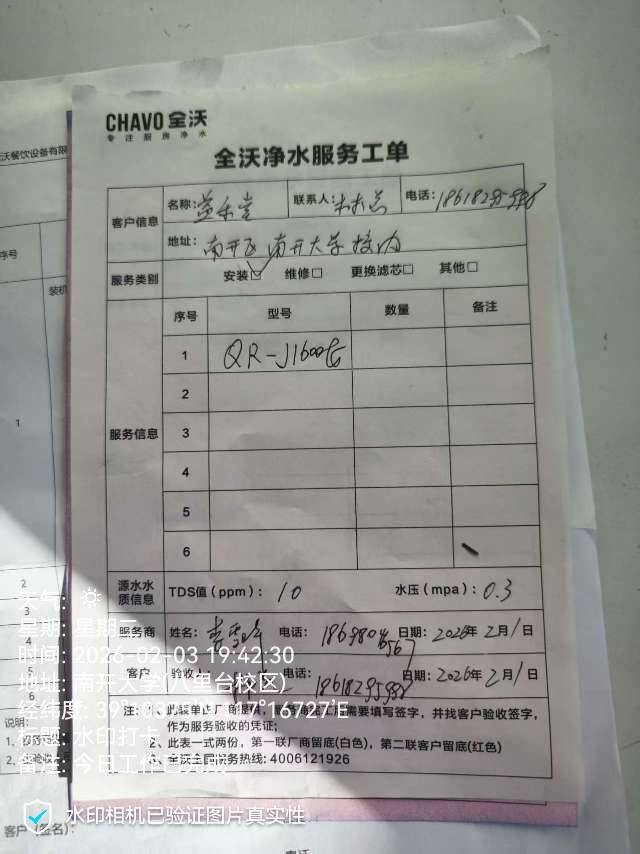 CHAVO 全沃
专注厨房净水
全沃净水服务工单
客户信息
名称: 益禾堂 联系人: 电话: 1861829
地址: 南开区 南开大学校内
服务类别 安装☑ 维修□ 更换滤芯□ 其他□
服务信息
序号 型号 数量 备注
1 QR-J1600
2
3
4
5
6
源水水质信息 TDS值(ppm): 10 水压(mpa): 0.3
服务商 姓名: 电话: 日期: 2026年2月1日
客户 验收人: 电话: 日期: 2026年2月1日
注: 1、此装单由厂商提供, 需要填写签字，并找客户验收签字，
作为服务验收的凭证;
2、此表一式两份，第一联厂商留底(白色)，第二联客户留底(红色)
3、全沃全国服务热线: 4006121926
沃餐饮设备有限
序号
装机
1
2
3
4
5
6
说明:
客户(签名):
天气:
星期: 星期二
时间: 2026-02-03 19:42:30
地址: 南开大学(八里台校区)
经纬度:
标题: 水印打卡
备注: 今日工作已完成
水印相机已验证图片真实性